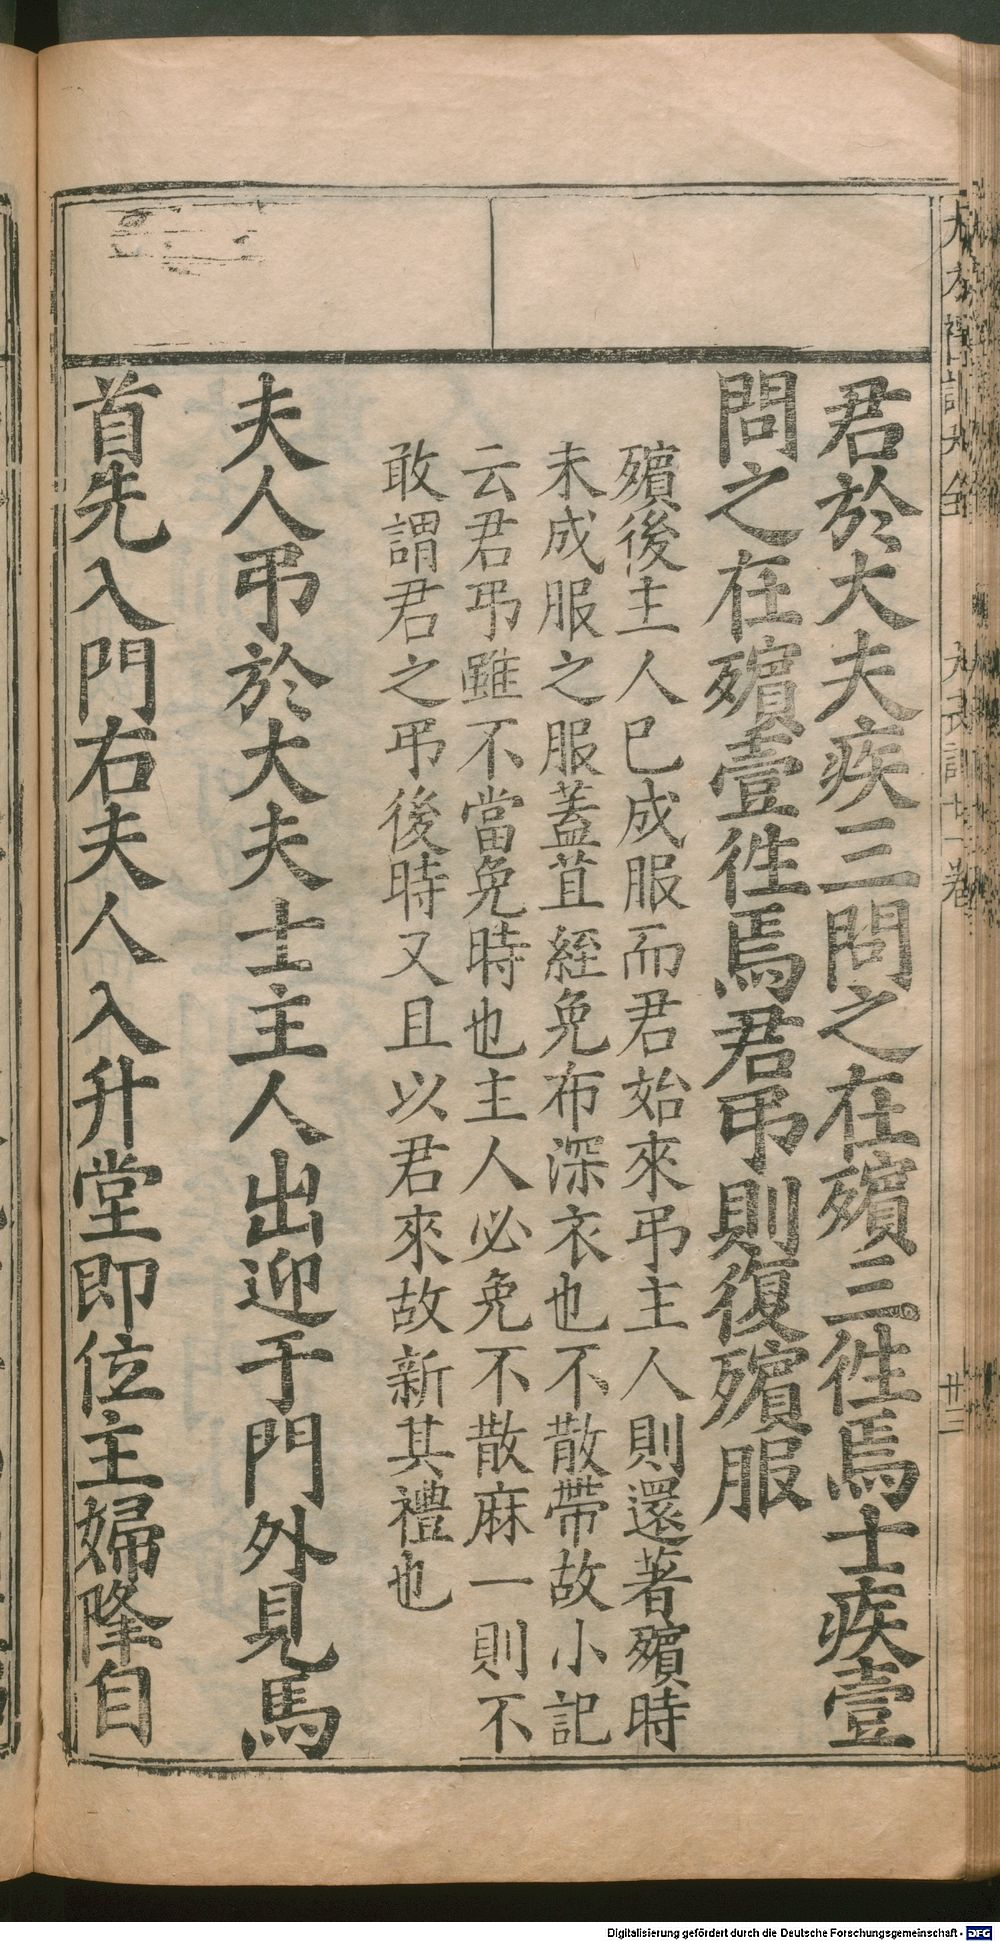 君於大夫疾三問之在殯三徃焉士疾壹
問之在殯壹徃焉君弔則復殯服
殯後主人已成服而君始來弔主人則還著殯時
未成服之服蓋苴絰免布深衣也不散帶故小記
云君弔雖不當免時也主人必免不散麻一則不
敢謂君之弔後時又且以君來故新其禮也
夫人弔於大夫士主人出迎于門外見馬
首先入門右夫人入升堂即位主婦降自
Digitalisierung gefördert durch die Deutsche Forschungsgemeinschaft - DFG